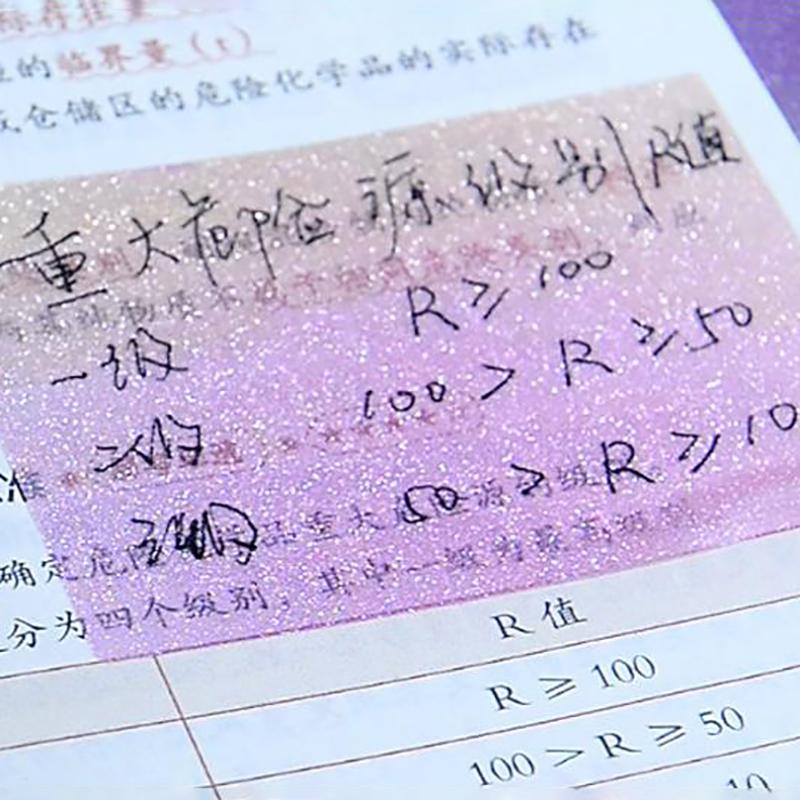 标存在量
的临界量(t)
仓储区的危险化学品的实际存在
重大危险源级别 R值
一级 R≥100
二级 100>R≥50
三级 50>R≥10
准
确定危险 品重大 源 级
分为四个级别,其中一级为最高级别
R值
R≥100
100>R≥50
10